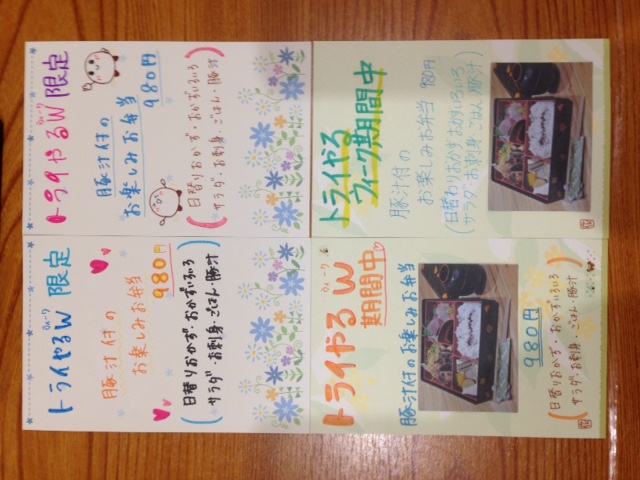 トライやるW 限定
ウィーク
豚汁付の
お楽しみお弁当
980円
日替りおかず・おかずいろいろ
サラダ・お刺身・ごはん・豚汁
トライやるW 限定
ウィーク
豚汁付の
お楽しみお弁当
980円
日替りおかず・おかずいろいろ
サラダ・お刺身・ごはん・豚汁
トライやるW
ウィーク
期間中
豚汁付のお楽しみお弁当
980円
日替りおかず・おかずいろいろ
サラダ・お刺身・ごはん・豚汁
トライやる
ウィーク期間中
豚汁付の
お楽しみお弁当 980円
日替わりおかず おかずいろいろ
サラダ・お刺身・ごはん・豚汁